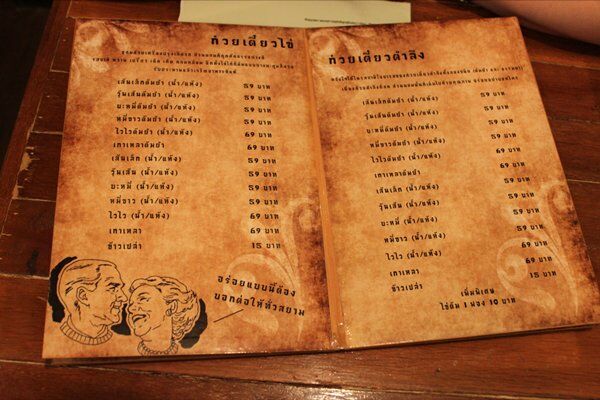 ก๋วยเตี๋ยวไข่
เส้นเล็กต้มยำ (น้ำ/แห้ง) 59 บาท
วุ้นเส้นต้มยำ (น้ำ/แห้ง) 59 บาท
บะหมี่ต้มยำ (น้ำ/แห้ง) 59 บาท
หมี่ขาวต้มยำ (น้ำ/แห้ง) 59 บาท
ไวไวต้มยำ (น้ำ/แห้ง) 69 บาท
เกาเหลาต้มยำ 69 บาท
เส้นเล็ก (น้ำ/แห้ง) 59 บาท
วุ้นเส้น (น้ำ/แห้ง) 59 บาท
บะหมี่ (น้ำ/แห้ง) 59 บาท
หมี่ขาว (น้ำ/แห้ง) 59 บาท
ไวไว (น้ำ/แห้ง) 69 บาท
เกาเหลา 69 บาท
ข้าวเปล่า 15 บาท
อร่อยแบบนี้ต้อง
บอกต่อให้ทั่วสยาม
ก๋วยเตี๋ยวตำลึง
เส้นเล็กต้มยำ (น้ำ/แห้ง) 59 บาท
วุ้นเส้นต้มยำ (น้ำ/แห้ง) 59 บาท
บะหมี่ต้มยำ (น้ำ/แห้ง) 59 บาท
หมี่ขาวต้มยำ (น้ำ/แห้ง) 59 บาท
ไวไวต้มยำ (น้ำ/แห้ง) 69 บาท
เกาเหลาต้มยำ 69 บาท
เส้นเล็ก (น้ำ/แห้ง) 59 บาท
วุ้นเส้น (น้ำ/แห้ง) 59 บาท
บะหมี่ (น้ำ/แห้ง) 59 บาท
หมี่ขาว (น้ำ/แห้ง) 59 บาท
ไวไว (น้ำ/แห้ง) 69 บาท
เกาเหลา 69 บาท
ข้าวเปล่า 15 บาท
เพิ่มพิเศษ
ไข่ต้ม 1 ฟอง 10 บาท